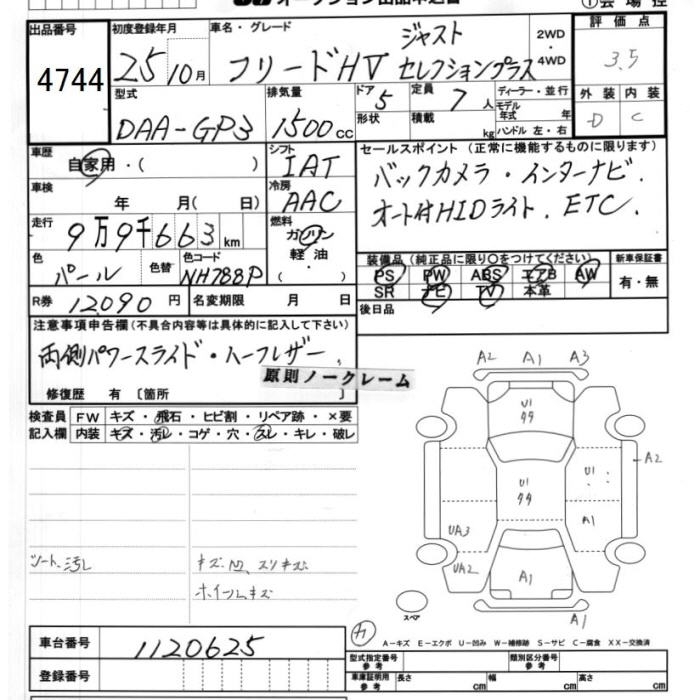 オークション出品申込書
①会場控
出品番号 4744
初度登録年月 25 10月
車名・グレード フリードHV ジャスト セレクションプラス
2WD・4WD
評価点 3.5
型式 DAA-GP3
排気量 1500cc
ドア 5 形状
定員 7人 積載 kg
ディーラー・並行
モデル年式 年
ハンドル 左・右
外装 D 内装 C
車歴 自家用・( )
シフト IAT
セールスポイント (正常に機能するものに限ります)
バックカメラ・インターナビ.
オート付HIDライト. ETC.
車検 年 月( 日)
冷房 AAC
走行 9万9千663km
燃料 ガソリン 軽油・( )
色 パール 色替 色コード NH788P
装備品 (純正品に限り○をつけてください)
PS PW ABS エアB AW
SR ナビ TV 本革
新車保証書 有・無
R券 12090円 名変期限 月 日
後日品
注意事項申告欄 (不具合内容等は具体的に記入して下さい)
両側パワースライド・ハーフレザー
原則ノークレーム
修復歴 有 〔箇所 〕
検査員記入欄 FW キズ・飛石・ヒビ割・リペア跡・×要
内装 キズ・汚レ・コゲ・穴・スレ・キレ・破レ
シート、汚レ
キズ凹 スリキズ
ホイールキズ
A2 A1 A3
U1
タタ
A2
U1
U1
タタ
A1
UA3
UA2
A1
スペア
A1
A-キズ E-エクボ U-凹み W-補修跡 S-サビ C-腐食 XX-交換済
車台番号 1120625
登録番号
型式指定番号 参考 類別区分番号 参考
車庫証明用 参考 長さ cm 幅 cm 高さ cm